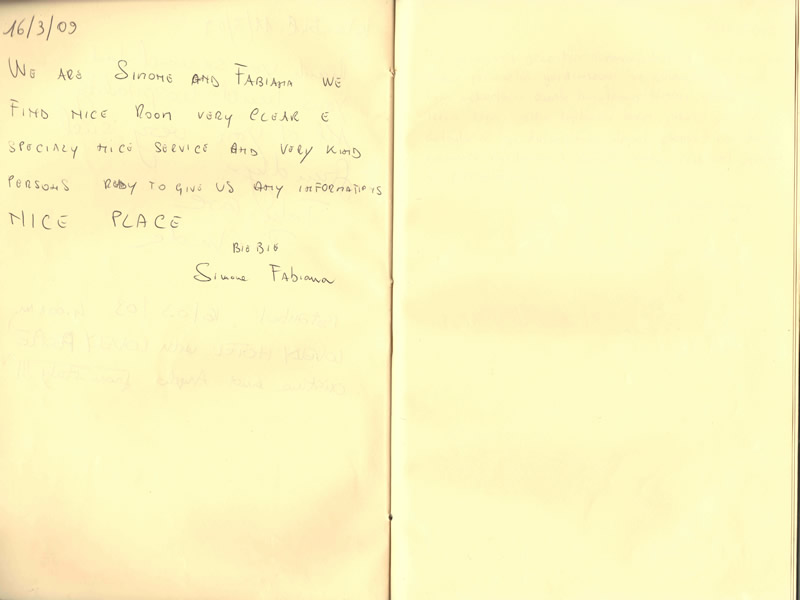 16/3/09
WE ARE SIMONE AND FABIANA WE
FIND NICE ROOM VERY CLEAR E
SPECIALY NICE SERVICE AND VERY KIND
PERSONS READY TO GIVE US ANY INFORMATIONS
NICE PLACE
BIE BIE
Simone Fabiana